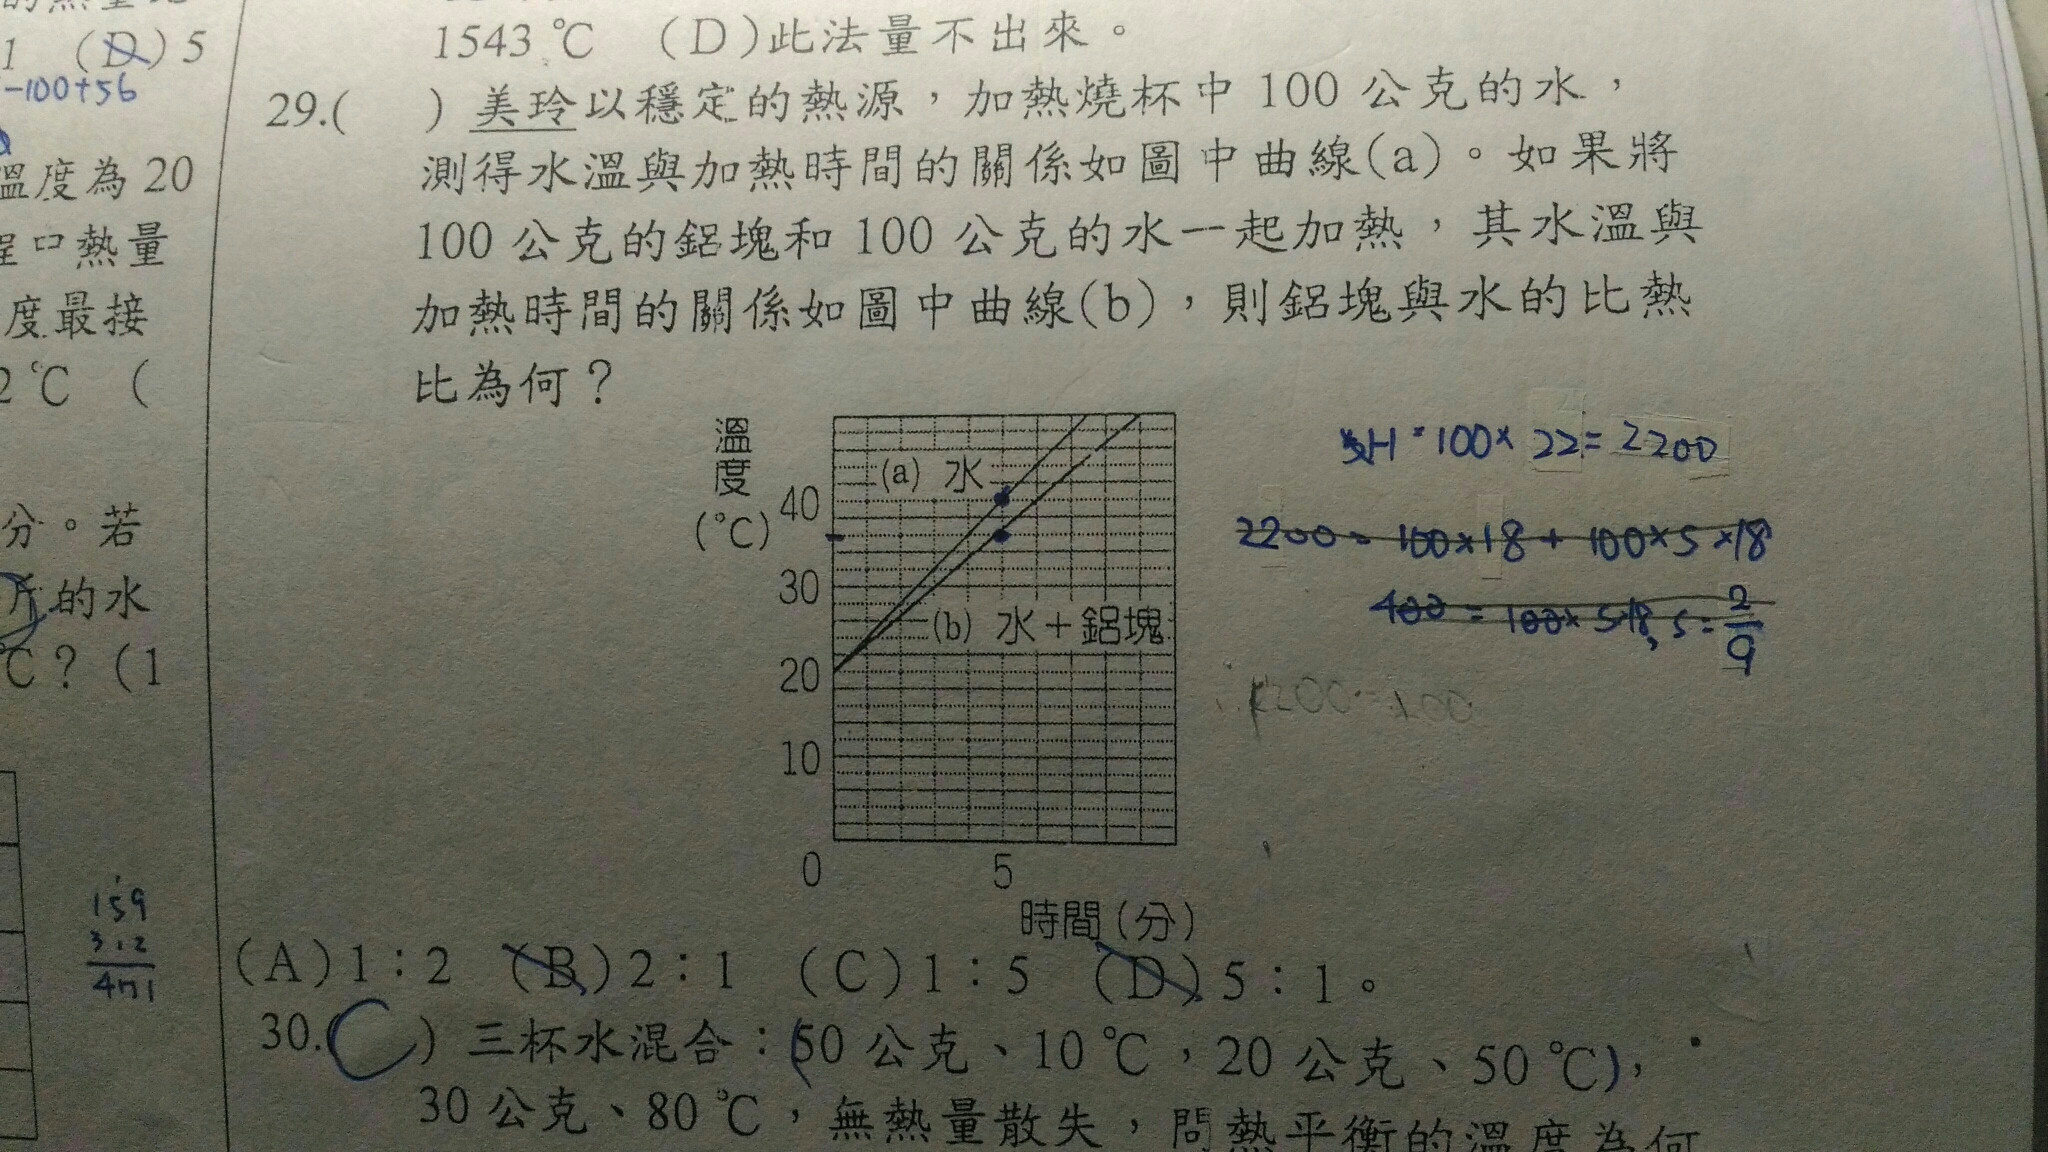 1 (D) 5
-100+56
溫度為 20
熱量
度最接
2℃ (
分。若
的水
℃?(1
159
312
471
1543 ℃ (D)此法量不出來。
29.( ) 美玲以穩定的熱源，加熱燒杯中 100 公克的水，
測得水溫與加熱時間的關係如圖中曲線(a)。如果將
100 公克的鋁塊和 100 公克的水一起加熱，其水溫與
加熱時間的關係如圖中曲線(b)，則鋁塊與水的比熱
比為何？
溫度(℃)
40
30
20
10
0
5
時間(分)
(a) 水
(b) 水＋鋁塊
H=100×22=2200
2200=100×18+100×5×18
400=100×5×18, s=2/9
(A)1：2 (B)2：1 (C)1：5 (D)5：1。
30.(C) 三杯水混合：(50 公克、10 ℃，20 公克、50 ℃)，
30 公克、80 ℃，無熱量散失，問熱平衡的溫度為何